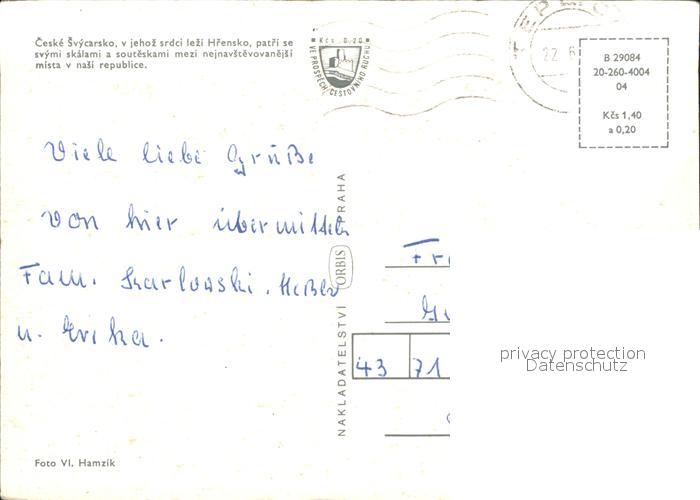 České Švýcarsko, v jehož srdci leží Hřensko, patří se
svými skálami a soutěskami mezi nejnavštěvovanější
místa v naší republice.
Kčs 0,20
VE PROSPĚCH CESTOVNÍHO RUCHU
22. 6
B 29084
20-260-4004
04
Kčs 1,40
a 0,20
Viele liebe Grüße
von hier übermitteln
Fam.
u. Erika.
NAKLADATELSTVÍ ORBIS PRAHA
Fr
43 71
privacy protection
Datenschutz
Foto Vl. Hamzík